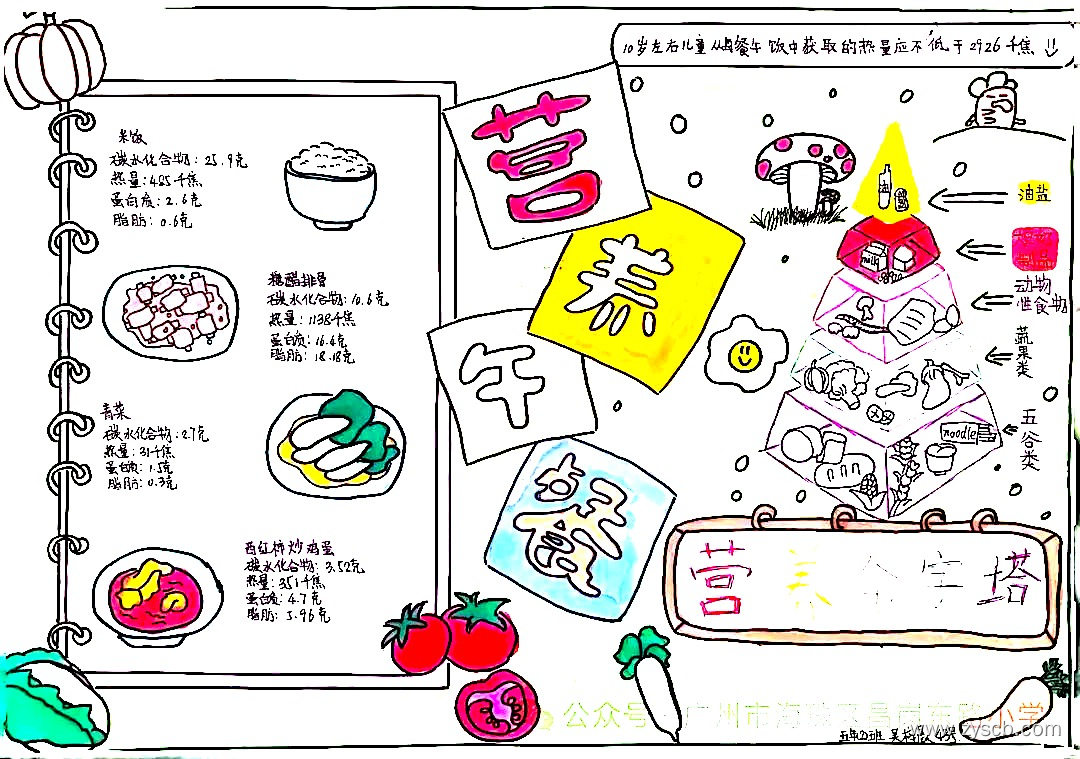 10岁左右儿童从每餐午饭中获取的热量应不低于2926千焦
米饭
碳水化合物：25.9克
热量：485千焦
蛋白质：2.6克
脂肪：0.6克
糖醋排骨
碳水化合物：10.6克
热量：1138千焦
蛋白质：16.4克
脂肪：18.18克
青菜
碳水化合物：2.7克
热量：31千焦
蛋白质：1.5克
脂肪：0.3克
西红柿炒鸡蛋
碳水化合物：3.52克
热量：351千焦
蛋白质：4.7克
脂肪：5.96克
营
养
午
餐
油盐
动物
性食物
蔬
果
类
五
谷
类
milk
noodle
营养金字塔
公众号
广州市海珠区昌岗东路小学
www.zyscb.com